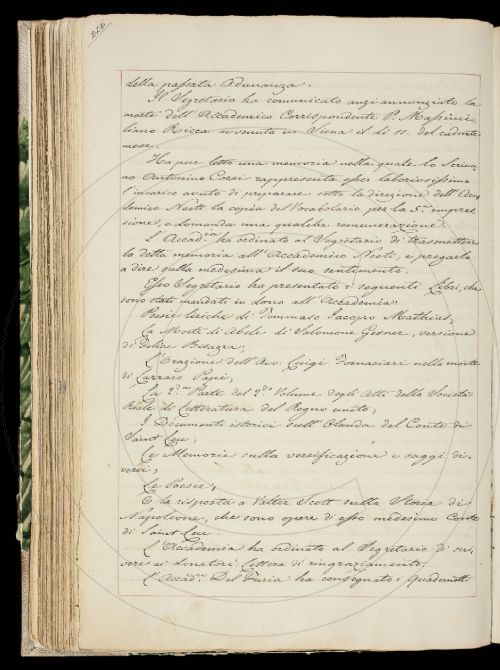 della passata Adunanza.
Il Segretario ha comunicato anzi annunziato la
morte dell'Accademico Corrispondente P. Massimi-
liano Ricca avvenuta in Siena il dì 11. del cadente
mese.
Ha pur letto una memoria nella quale lo Scriva-
no Antonino Corsi rappresenta esser laboriosissimo
l'incarico avuto di preparare sotto la direzione dell'Acca-
demico Nesti la copia del Vocabolario per la 5.ª impres-
sione, e domanda una qualche remunerazione.
L'Accad.ia ha ordinato al Segretario di trasmettere
la detta memoria all'Accademico Nesti, e pregarlo
a dire sulla medesima il suo sentimento.
Esso Segretario ha presentato i seguenti Libri, che
sono stati mandati in dono all'Accademia:
Poesie liriche di Tommaso Jacopo Matthias,
La Morte di Abele di Salomone Gesner, versione
di Felice Bisazza;
L'Orazione dell'Avv. Luigi Fornaciari nella morte
di Lazzaro Papi;
La 2.da Parte del 2.do Volume degli Atti della Società
Reale di Letteratura del Regno unito;
I Documenti istorici sull'Olanda del Conte di
Saint Leu;
Le Memorie sulla versificazione e saggi di-
versi;
Le Poesie;
E la risposta a Valter Scott sulla Storia di
Napoleone, che sono opere di esso medesimo Conte
di Saint Leu.
L'Accademia ha ordinato al Segretario di scri-
vere ai Donatori Lettera di ringraziamento.
L'Accad.co Del Furia ha consegnato i Quadernetti